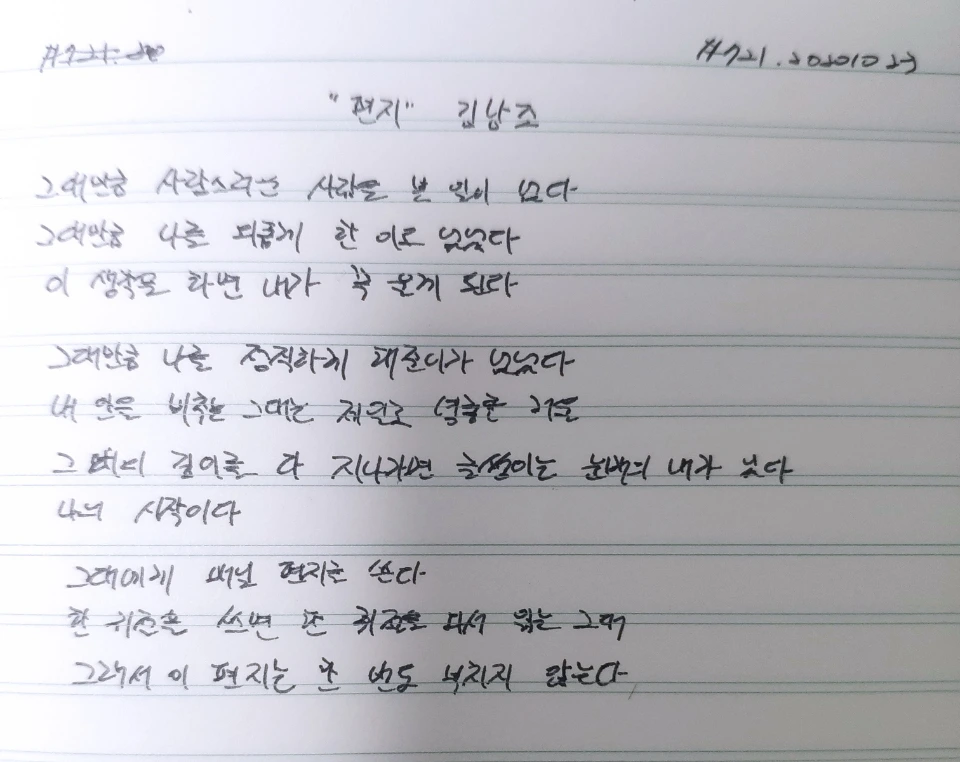 #721. 20201023
"편지" 김남조
그대만큼 사랑스러운 사람을 본 일이 없다
그대만큼 나를 외롭게 한 이도 없었다
이 생각을 하면 내가 꼭 울게 된다
그대만큼 나를 정직하게 해준이가 없었다
내 안을 비추는 그대는 제일로 영롱한 거울
그대의 깊이를 다 지나가면 글썽이는 눈매의 내가 있다
나의 시작이다
그대에게 매일 편지를 쓴다
한 귀절을 쓰면 한 귀절을 와서 읽는 그대
그래서 이 편지는 한 번도 부치지 않는다